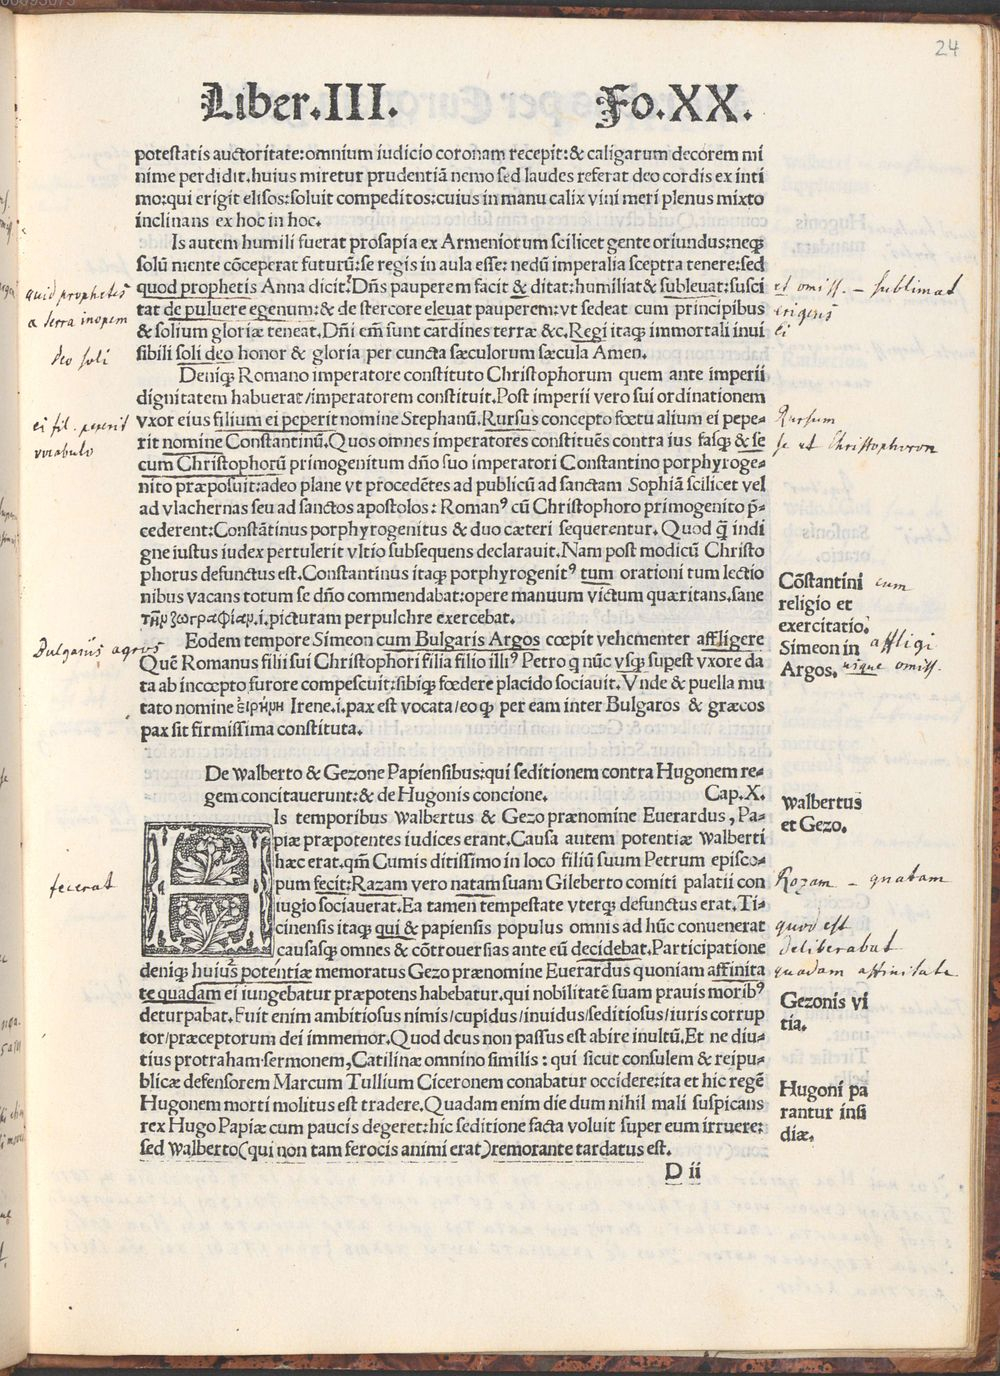 24
Liber.III. Fo.XX.
potestatis auctoritate:omnium iudicio coronam recepit:& caligarum decorem mi
nime perdidit.huius miretur prudentiã nemo sed laudes referat deo cordis ex inti
mo:qui erigit elisos:soluit compeditos:cuius in manu calix vini meri plenus mixto
inclinans ex hoc in hoc.
Is autem humili fuerat prosapia ex Armeniorum scilicet gente oriundus:neqʒ
solũ mente cõceperat futurũ:se regis in aula esse: nedũ imperalia sceptra tenere:sed
quod prophetis Anna dicit:Dñs pauperem facit & ditat:humiliat& subleuat:susci
tat de puluere egenum:& de stercore eleuat pauperem:vt sedeat cum principibus
& solium gloriæ teneat.Dñi em̃ sunt cardines terræ &c.Regi itaqʒ immortali inui
sibili soli deo honor & gloria per cuncta sæculorum sæcula Amen.
quid prophetis
a terra inopem
deo soli
et omiss. – sublimat
erigens
ei
Deniqʒ Romano imperatore constituto Christophorum quem ante imperii
dignitatem habuerat/imperatorem constituit.Post imperii vero sui ordinationem
vxor eius filium ei peperit nomine Stephanũ.Rursus concepto fœtu alium ei pepe-
rit nomine Constantinũ.Quos omnes imperatores constituẽs contra ius fasqʒ & se
cum Christophorũ primogenitum dño suo imperatori Constantino porphyroge-
nito præposuit:adeo plane vt procedẽtes ad publicũ ad sanctam Sophiã scilicet vel
ad vlachernas seu ad sanctos apostolos: Romanꝰ cũ Christophoro primogenito p̃-
cederent:Constãtinus porphyrogenitus & duo cæteri sequerentur. Quod q̃ indi
gne iustus iudex pertulerit vltio subsequens declarauit.Nam post modicũ Christo
phorus defunctus est.Constantinus itaqʒ porphyrogenitꝰ tum orationi tum lectio
nibus vacans totum se dño commendabat:opere manuum victum quæritans.sane
τὴν ζωγραφίαν.i.picturam perpulchre exercebat.
ei fil. peperit
vocabulo
Rursum
se et Christophoron
Cõstantini
religio et
exercitatio.
cum
Eodem tempore Simeon cum Bulgaris Argos cœpit vehementer affligere
Quẽ Romanus filii sui Christophori filia filio illiꝰ Petro q nũc vsqʒ supest vxore da
ta ab incœpto furore compescuit:sibiqʒ fœdere placido sociauit. Vnde & puella mu
tato nomine εἰρήνη Irene.i.pax est vocata/eo qʒ per eam inter Bulgaros & græcos
pax sit firmissima constituta.
Bulgariis agros
Simeon in
Argos.
affligi
usque omiss.
De Walberto & Gezone Papiensibus:qui seditionem contra Hugonem re-
gem concitauerunt:& de Hugonis concione. Cap.X.
HIs temporibus Walbertus & Gezo prænomine Euerardus , Pa-
piæ præpotentes iudices erant.Causa autem potentiæ Walberti
hæc erat.qm̃ Cumis ditissimo in loco filiũ suum Petrum episco-
pum fecit:Razam vero natam suam Gileberto comiti palatii con
iugio sociauerat.Ea tamen tempestate vterqʒ defunctus erat.Ti-
cinensis itaqʒ qui & papiensis populus omnis ad hũc conuenerat
causasqʒ omnes & cõtrouersias ante eũ decidebat.Participatione
deniqʒ huius potentiæ memoratus Gezo prænomine Euerardus quoniam affinita
te quadam ei iungebatur præpotens habebatur.qui nobilitatẽ suam prauis moribꝰ
deturpabat.Fuit enim ambitiosus nimis/cupidus/inuidus/seditiosus/iuris corrup
tor/præceptorum dei immemor.Quod deus non passus est abire inultũ.Et ne diu-
tius protraham sermonem,Catilinæ omnino similis : qui sicut consulem & reipu-
blicæ defensorem Marcum Tullium Ciceronem conabatur occidere:ita et hic regẽ
Hugonem morti molitus est tradere.Quadam enim die dum nihil mali suspicans
rex Hugo Papiæ cum paucis degeret:hic seditione facta voluit super eum irruere:
sed Walberto(qui non tam ferocis animi erat)remorante tardatus est.
fecerat
Walbertus
et Gezo.
Rozam – gnatam
quod est
deliberabat
quadam affinitate
Gezonis vi
tia.
Hugoni pa
rantur insi
diæ.
D ii